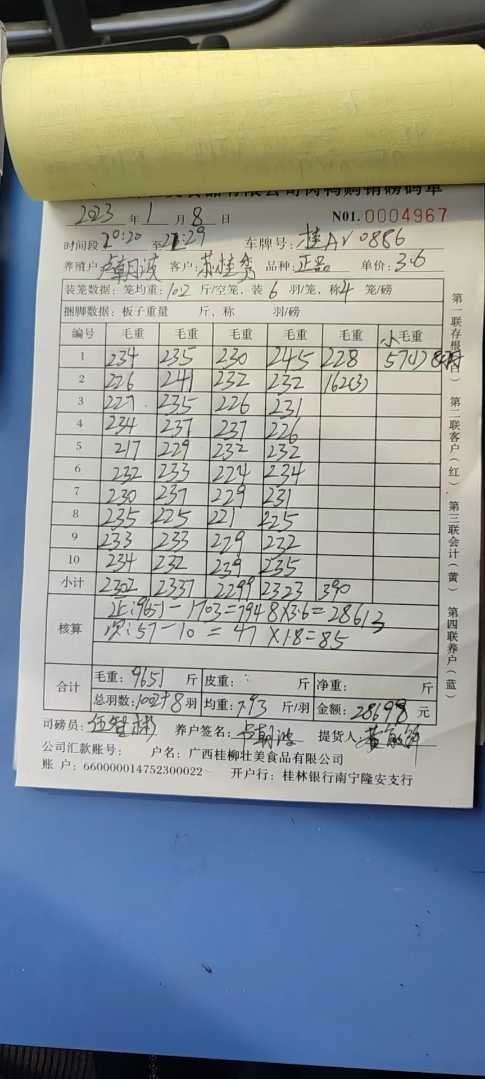 食品有限公司肉鸭购销磅码单
2023 年 1 月 8 日 N01.0004967
时间段 20:20 至 21:29 车牌号: 桂AV0886
养殖户 卢朝波 客户: 苏桂秀 品种: 正品 单价: 3.6
装笼数据: 笼均重: 10.2 斤/空笼, 装 6 羽/笼, 称 4 笼/磅
捆脚数据: 板子重量 斤、称 羽/磅
编号 毛重 毛重 毛重 毛重 毛重 小毛重
1 234 235 230 245 228 57(1)
2 226 241 232 232 162(3)
3 227 235 226 231
4 234 237 237 226
5 217 229 232 232
6 232 233 224 234
7 230 237 229 231
8 235 225 221 225
9 233 233 229 232
10 234 232 239 235
小计 2302 2337 2299 2323 390
核算 正:9651-1703=7948×3.6=28613
次:57-10=47×1.8=85
合计 毛重: 9651 斤 皮重: 斤 净重: 斤
总羽数: 1002+8 羽 均重: 7.93 斤/羽 金额: 28698 元
司磅员: 养户签名: 卢朝波 提货人:
公司汇款账号: 户名: 广西桂柳壮美食品有限公司
账 户: 660000014752300022 开户行: 桂林银行南宁隆安支行
第一联存根
第二联客户(红)
第三联会计(黄)
第四联养户(蓝)